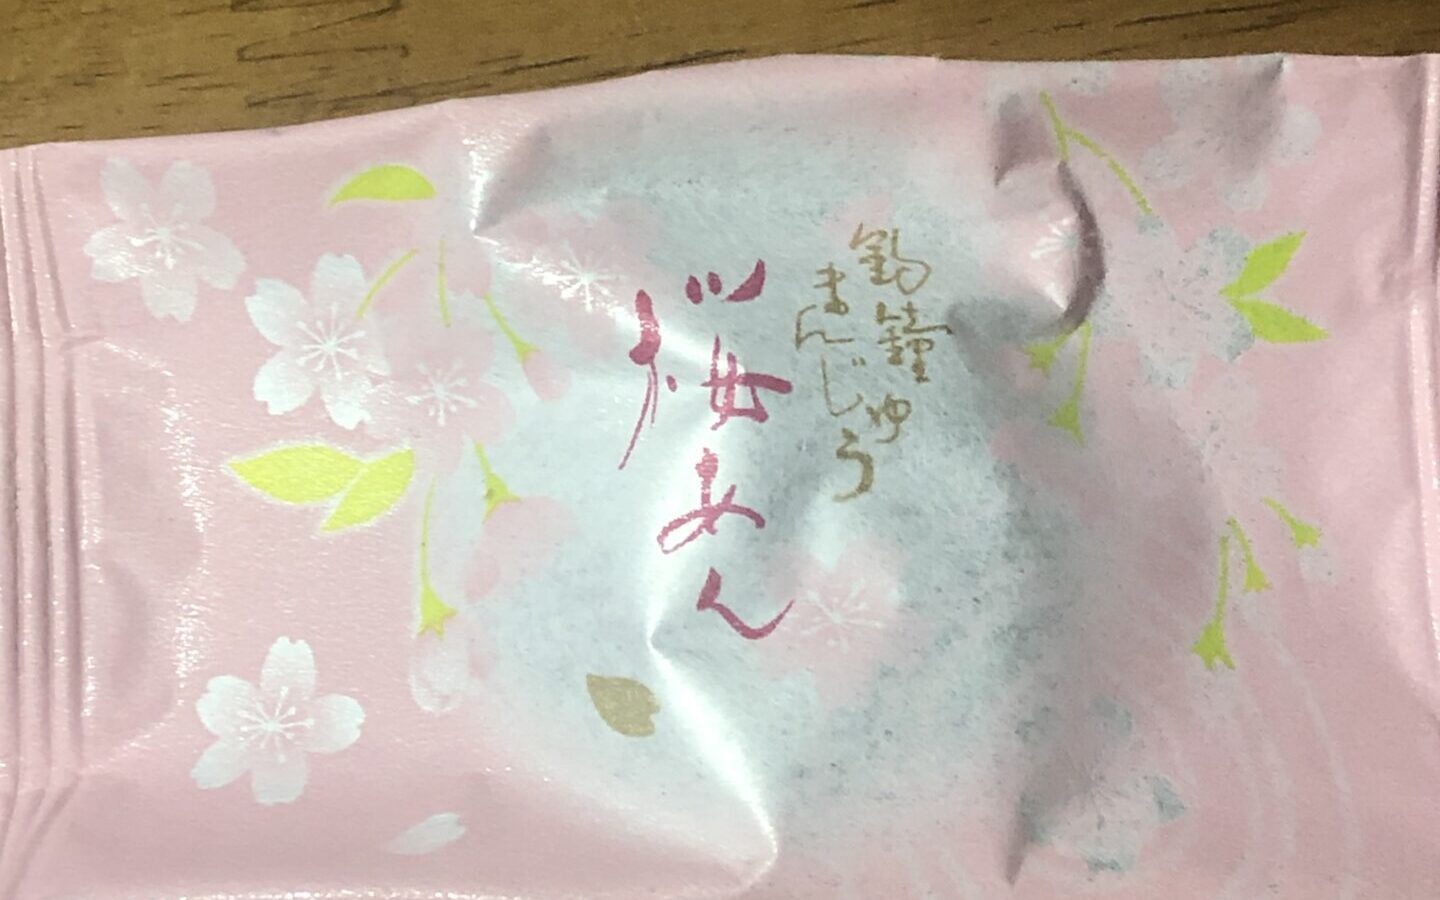 釣鐘
まんじゅう
桜あん